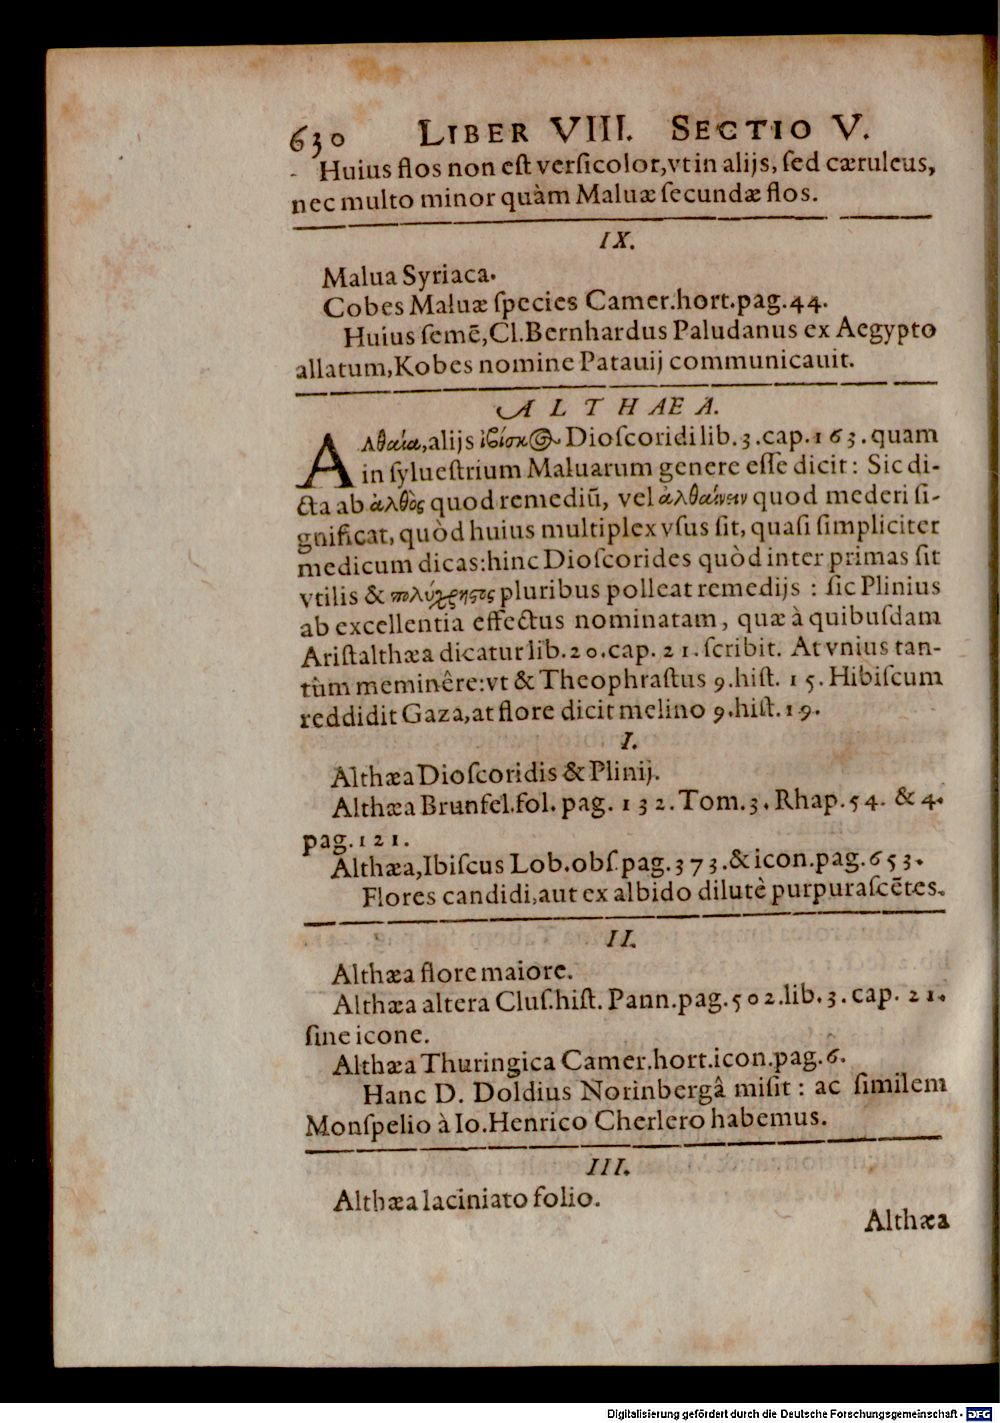 630 LIBER VIII. SECTIO V.
Huius flos non eſt verſicolor, vt in alijs, ſed cæruleus,
nec multo minor quàm Maluæ ſecundæ flos.
IX.
Malua Syriaca.
Cobes Maluæ ſpecies Camer. hort. pag. 44.
Huius ſemē, Cl. Bernhardus Paludanus ex Aegypto
allatum, Kobes nomine Patauij communicauit.
ALTHAEA.
Αλθαία, alijs ἰβίσκος Dioſcoridi lib. 3. cap. 163. quam
in ſylueſtrium Maluarum genere eſſe dicit: Sic di-
cta ab ἀλθὸς quod remediū, vel ἀλθαίνειν quod mederi ſi-
gnificat, quòd huius multiplex vſus ſit, quaſi ſimpliciter
medicum dicas: hinc Dioſcorides quòd inter primas ſit
vtilis & πολύχρηςτς pluribus polleat remedijs : ſic Plinius
ab excellentia effectus nominatam, quæ à quibuſdam
Ariſtalthæa dicatur lib. 20. cap. 21. ſcribit. At vnius tan-
tùm meminêre: vt & Theophraſtus 9. hiſt. 15. Hibiſcum
reddidit Gaza, at flore dicit melino 9. hiſt. 19.
I.
Althæa Dioſcoridis & Plinij.
Althæa Brunfel. fol. pag. 132. Tom. 3. Rhap. 54. & 4.
pag. 121.
Althæa, Ibiſcus Lob. obſ. pag. 373. & icon. pag. 653.
Flores candidi, aut ex albido dilutè purpuraſcētes.
II.
Althæa flore maiore.
Althæa altera Cluſ. hiſt. Pann. pag. 502. lib. 3. cap. 21.
ſine icone.
Althæa Thuringica Camer. hort. icon. pag. 6.
Hanc D. Doldius Norinbergâ miſit : ac ſimilem
Monſpelio à Io. Henrico Cherlero habemus.
III.
Althæa laciniato folio.
Althæa
Digitalisierung gefördert durch die Deutsche Forschungsgemeinschaft - DFG